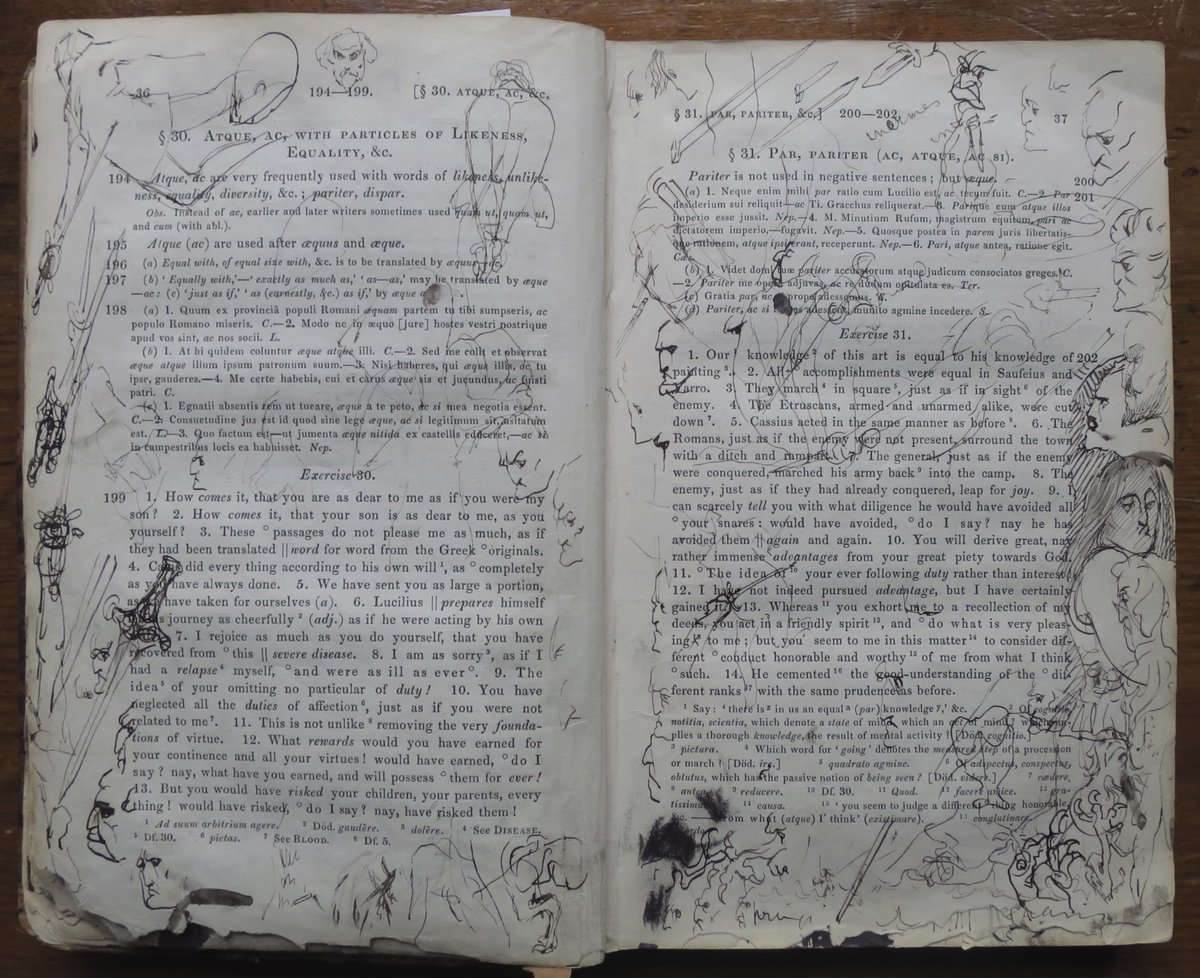 36 194—199. [§ 30. ATQUE, AC, &c.
§ 30. ATQUE, AC, WITH PARTICLES OF LIKENESS,
EQUALITY, &c.
194 Atque, ac are very frequently used with words of likeness, unlike-
ness, equality, diversity, &c.; pariter, dispar.
Obs. Instead of ac, earlier and later writers sometimes used quam ut, quam ut,
and cum (with abl.).
195 Atque (ac) are used after æquus and æque.
196 (a) Equal with, of equal size with, &c. is to be translated by æquus—ac.
197 (b) 'Equally with,'—'exactly as much as,' 'as—as,' may be translated by æque
—ac: (c) 'just as if,' 'as (earnestly, &c.) as if,' by æque
198 (a) 1. Quum ex provinciâ populi Romani æquam partem tu tibi sumpseris, ac
populo Romano miseris. C.—2. Modo ne in æquo [jure] hostes vestri nostrique
apud vos sint, ac nos socii. L.
(b) 1. At hi quidem coluntur æque atque illi. C.—2. Sed me colit et observat
æque atque illum ipsum patronum suum.—3. Nisi haberes, qui æque illis, ac tu
ipse, gauderes.—4. Me certe habebis, cui et carus æque sis et jucundus, ac fuisti
patri. C.
(c) 1. Egnatii absentis rem ut tueare, æque a te peto, ac si mea negotia essent.
C.—2. Consuetudine jus est id quod sine lege æque, ac si legitimum sit, usitatum
est. L.—3. Quo factum est—ut jumenta æque nitida ex castellis educeret,—ac si
in campestribus locis ea habuisset. Nep.
Exercise 30.
199 1. How comes it, that you are as dear to me as if you were my
son? 2. How comes it, that your son is as dear to me, as you
yourself? 3. These °passages do not please me as much, as if
they had been translated ||word for word from the Greek °originals.
4. did every thing according to his own will¹, as °completely
as you have always done. 5. We have sent you as large a portion,
as have taken for ourselves (a). 6. Lucilius ||prepares himself
journey as cheerfully² (adj.) as if he were acting by his own
7. I rejoice as much as you do yourself, that you have
recovered from °this ||severe disease. 8. I am as sorry³, as if I
had a relapse⁴ myself, °and were as ill as ever°. 9. The
idea⁵ of your omitting no particular of duty! 10. You have
neglected all the duties of affection⁶, just as if you were not
related to me⁷. 11. This is not unlike⁸ removing the very founda-
tions of virtue. 12. What rewards would you have earned for
your continence and all your virtues! would have earned, °do I
say? nay, what have you earned, and will possess °them for ever!
13. But you would have risked your children, your parents, every
thing! would have risked, °do I say? nay, have risked them!
¹ Ad suum arbitrium agere. ² Död. gaudēre. ³ dolēre. ⁴ See DISEASE.
⁵ Df. 30. ⁶ pietas. ⁷ See BLOOD. ⁸ Df. 5.
§ 31. PAR, PARITER, &c.] 200—202. 37
§ 31. PAR, PARITER (AC, ATQUE, AC SI).
Pariter is not used in negative sentences; but æque. 200
(a) 1. Neque enim mihi par ratio cum Lucilio est, ac tecum fuit. C.—2. Par 201
desiderium sui reliquit—ac Ti. Gracchus reliquerat.—3. Parique eum atque illos
imperio esse jussit. Nep.—4. M. Minutium Rufum, magistrum equitum, pari ac
dictatorem imperio,—fugavit. Nep.—5. Quosque postea in parem juris libertatis-
que rationem, atque ipsi erant, receperunt. Nep.—6. Pari, atque antea, ratione egit.
Cæs.
(b) 1. Videt domi tuæ pariter accusatorum atque judicum consociatos greges. C.
—2. Pariter me opere adjuvas, ac re dudum opitulata es. Ter.
(c) Gratia par, ac
(d) Pariter, ac si hostes adessent, munito agmine incedere. S.
Exercise 31.
1. Our¹ knowledge² of this art is equal to his knowledge of 202
painting³. 2. All accomplishments were equal in Saufeius and
Varro. 3. They march⁴ in square⁵, just as if in sight⁶ of the
enemy. 4. The Etruscans, armed and unarmed alike, were cut
down⁷. 5. Cassius acted in the same manner as before⁸. 6. The
Romans, just as if the enemy were not present, surround the town
with a ditch and rampart. 7. The general, just as if the enemy
were conquered, marched his army back⁹ into the camp. 8. The
enemy, just as if they had already conquered, leap for joy. 9. I
can scarcely tell you with what diligence he would have avoided all
°your snares: would have avoided, °do I say? nay he has
avoided them ||again and again. 10. You will derive great, nay
rather immense advantages from your great piety towards God.
11. °The idea of¹⁰ your ever following duty rather than interest!
12. I have not indeed pursued advantage, but I have certainly
gained it. 13. Whereas¹¹ you exhort me to a recollection of my
deeds, you act in a friendly spirit¹², and °do what is very pleas-
ing¹³ to me; but you seem to me in this matter¹⁴ to consider dif-
ferent °conduct honorable and worthy¹⁵ of me from what I think
°such. 14. He cemented¹⁶ the good-understanding of the °dif-
ferent ranks¹⁷ with the same prudence as before.
¹ Say: 'there is in us an equal (par) knowledge,' &c. ² Of cognitio,
notitia, scientia, which denote a state of mind, which an act of mind? which im-
plies a thorough knowledge, the result of mental activity? [Död. cognitio.]
³ pictura. ⁴ Which word for 'going' denotes the measured step of a procession
or march? [Död. ire.] ⁵ quadrato agmine. ⁶ Of adspectus, conspectus,
obtutus, which has the passive notion of being seen? [Död. videre.] ⁷ cædere.
⁸ antea. ⁹ reducere. ¹⁰ Df. 30. ¹¹ Quod. ¹² facere amice. ¹³ gra-
tissimus. ¹⁴ causa. ¹⁵ 'you seem to judge a different thing honorable,
&c. from what (atque) I think' (existimare). ¹⁶ conglutinare.